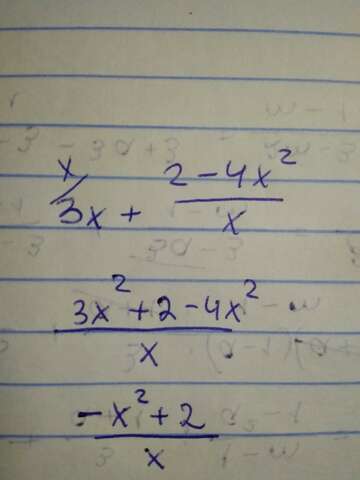 x/ 3x + (2 - 4x²)/x
(3x² + 2 - 4x²)/x
(-x² + 2)/x